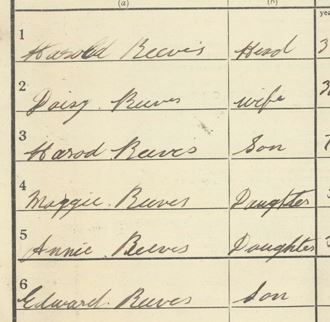 (a) (b)
1 Harold Reeves Head 3
2 Daisy Reeves wife
3 Harod Reeves Son
4 Maggie Reeves Daughter
5 Annie Reeves Daughter
6 Edward Reeves Son